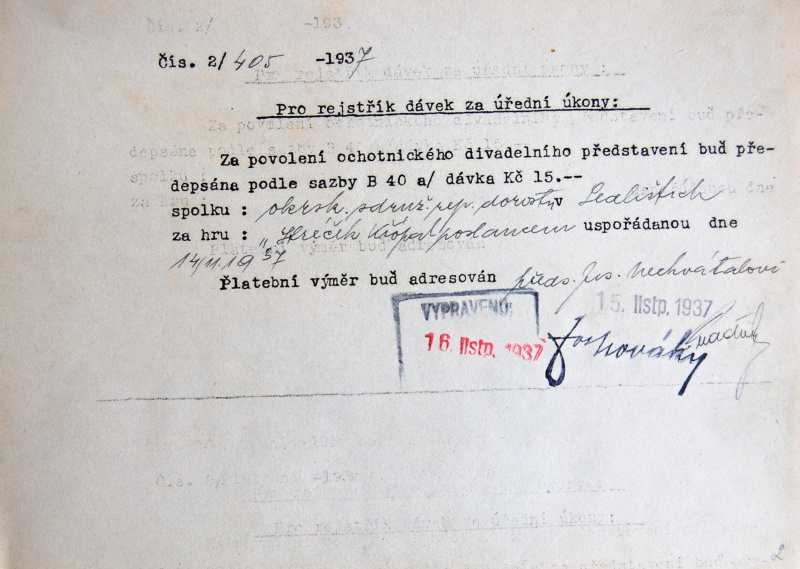 Čís. 2/405 -1937
Pro rejstřík dávek za úřední úkony:
Za povolení ochotnického divadelního představení buď pře-
depsána podle sazby B 40 a/ dávka Kč 15.--
spolku : okrsk. sdruž. rep. dorostu v Sedlištích
za hru : "Stréček Křópal poslancem uspořádanou dne
14/11. 1937
Platební výměr buď adresován předs. Jos. Nechvátalovi
VYPRAVENO:
16. listp. 1937
15. listp. 1937
Jos. Nováky
2